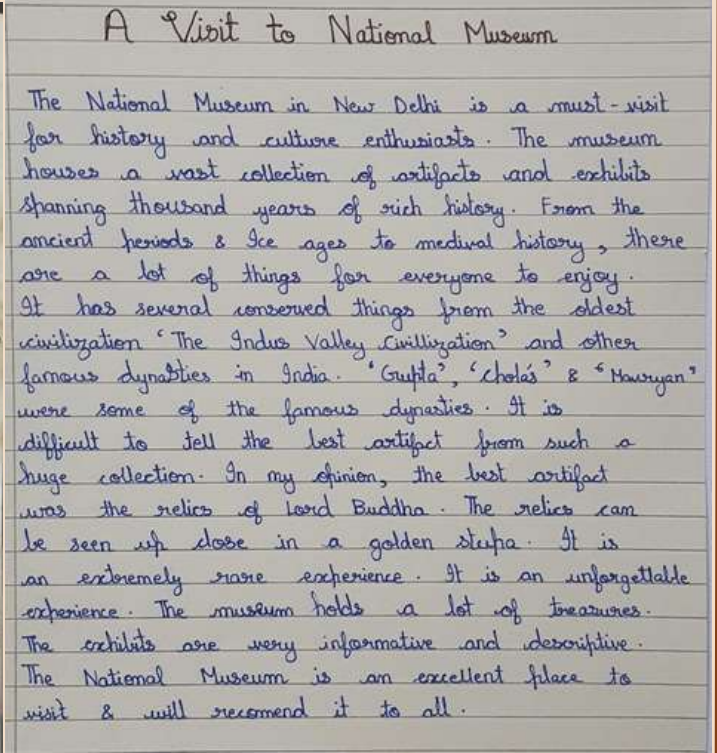 A Visit to National Museum
The National Museum in New Delhi is a must-visit
for history and culture enthusiasts. The museum
houses a vast collection of artifacts and exhibits
spanning thousand years of rich history. From the
ancient periods & Ice ages to medival history, there
are a lot of things for everyone to enjoy.
It has several conserved things from the oldest
civilization 'The Indus Valley Civillization' and other
famous dynasties in India. 'Gupta', 'cholas' & 'Mauryan'
were some of the famous dynasties. It is
difficult to tell the best artifact from such a
huge collection. In my opinion, the best artifact
was the relics of Lord Buddha. The relics can
be seen up close in a golden stupa. It is
an extremely rare experience. It is an unforgettable
experience. The museum holds a lot of treasures.
The exhibits are very informative and descriptive.
The National Museum is an excellent place to
visit & will recomend it to all.